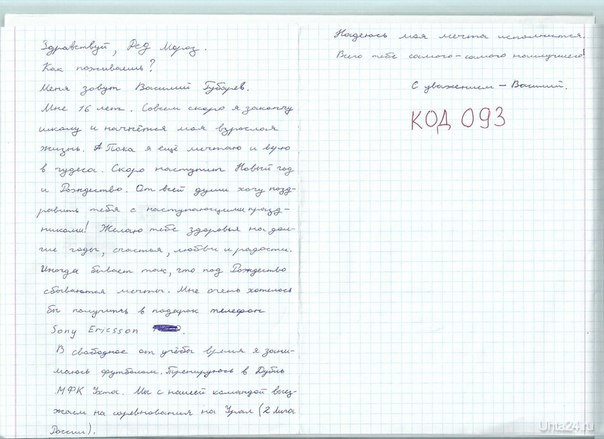 Здравствуй, Дед Мороз.
Как поживаешь?
Меня зовут Василий Губарев.
Мне 16 лет. Совсем скоро я закончу
школу и начнётся моя взрослая
жизнь. А Пока я ещё мечтаю и верю
в чудеса. Скоро наступит Новый год
и Рождество. От всей души хочу позд-
равить тебя с наступающими празд-
никами! Желаю тебе здоровья на дол-
гие годы, счастья, любви и радости.
Иногда бывает так, что под Рождество
сбываются мечты. Мне очень хотелось
бы получить в подарок телефон
Sony Ericsson .
В свободное от учёбы время я зани-
маюсь футболом. Тренируюсь в Дубль
МФК Ухта. Мы с нашей командой выез-
жаем на соревнования на Урал (2 Лига
России).
Надеюсь моя мечта исполнится.
Всего тебе самого-самого наилучшего!
С уважением - Василий.
КОД 093
Uhta24.ru